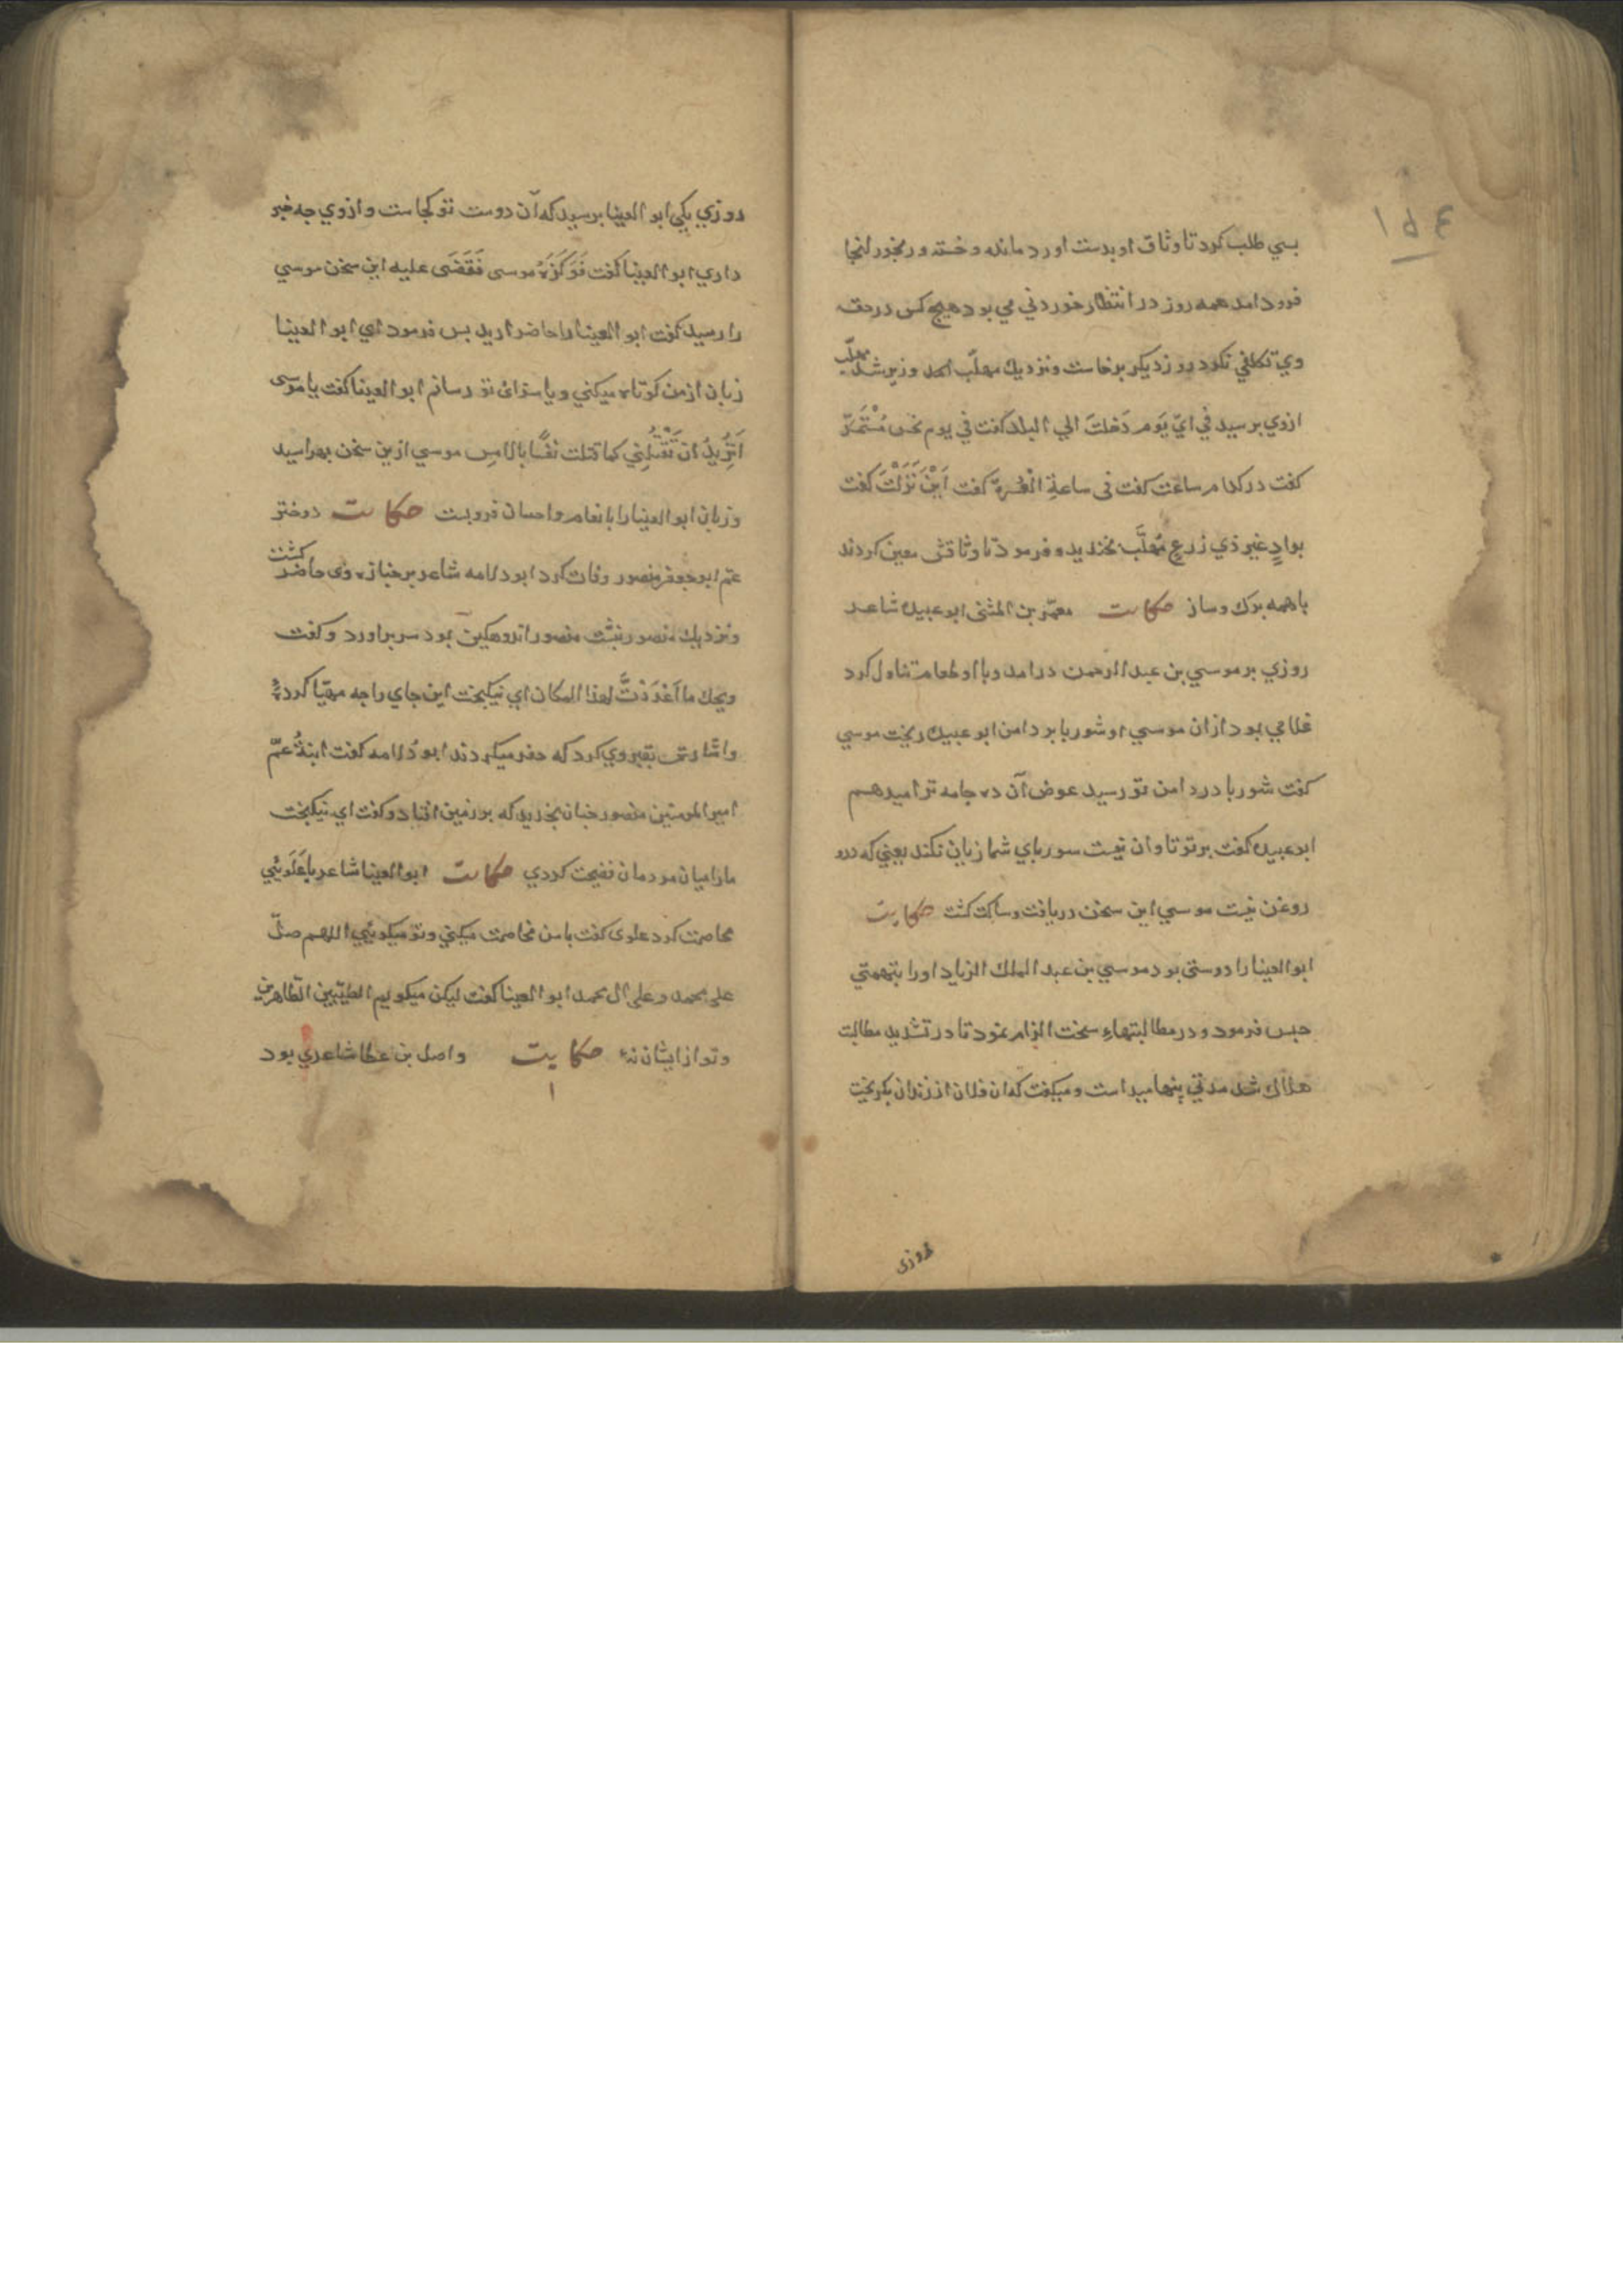 ۱۶۴
بسي طلب کرد تا وثاق او بدست اورد مانده و خسته و رنجور انجا
فرود امد همه روز در انتظار خوردني مي بود هيچ کس در حق
وي تکلفي نکرد روز ديکر برخاست و نزديک مهلّب امد وزير شد مهلّب
ازوي برسيد في ايّ يَوم دَخلتَ الي البلد کفت في يوم نحس مُسْتَمَرّ
کفت در کدام ساعت کفت فى ساعةِ العُسرة کفت اَيْنَ نَزَلْتَ کفت
بوادٍ غير ذي زرعٍ مُهلَّب بخنديد و فرمود تا وثاقش معين کردند
با همه برک و ساز حکايت معمّر بن المثنى ابو عبيده شاعر
روزي بر موسي بن عبد الرحمن درامد و با او طعام تناول کرد
غلامي بود ازان موسي او شوربا بر دامن ابو عبيده ريخت موسي
کفت شوربا در دامن تو رسيد عوض آن ده جامه ترا ميدهم
ابو عبيده کفت بر تو تاوان نيست سورباي شما زيان نکند يعني که درو
روغن نيست موسي اين سخن دريافت و ساکت کشت حکايت
ابو العينا را دوستى بود موسي بن عبد الملک الزياد او را بتهمتي
حبس فرمود و در مطالبتهاء سخت الزام نمود تا در تشديد مطالبت
هلاک شد مدتي پنها ميداست و ميکفت که ان فلان از زندان بکريخت
روزى
روزي يکي ابو العينا برسيد که آن دوست تو کجاست و ازوي جه خبر
داري ابو العينا کفت فَوَکَزَهُ موسى فَقَضَى عليه اين سخن موسي
را رسيد کفت ابو العينا را حاضر اريد بس فرمود اي ابو العينا
زبان ازمن کوتاه ميکني و يا سزاى تو رسانم ابو العينا کفت يا موسى
اَتُرِيدُ ان تَقْتُلَنِي کما قتلت نفسًا بالامسِ موسي ازين سخن بهراسيد
و زبان ابو العينا را بانعام و احسان فروبست حکايت دختر
عمّ ابو جعفر منصور وفات کرد ابو دلامه شاعر بر جنازه وى حاضر کشت
و نزديک منصور بنشست منصور اندوهکين بود سر براورد و کفت
ويحک ما اَعْدَدْتَّ لهذا المکان اي نيکبخت اين جاي را جه مهيّا کرده
و اشارتى بقبر وي کرد که حفر ميکردند ابو دُلامه کفت ابنةُ عمّ
امير المومنين منصور جنان بخنديد که بر زمين افتاد و کفت اي نيکبخت
مارا ميان مردمان فضيحت کردي حکايت ابو العينا شاعر با عَلَويّي
مخاصمت کرد علوى کفت با من مخاصمت ميکني و تو ميکويي اللهم صلّ
على محمد و على ال محمد ابو العينا کفت ليکن ميکويم الطيّبين الطاهرين
و تو از ايشان نهٔ حکايت واصل بن عطا شاعري بود